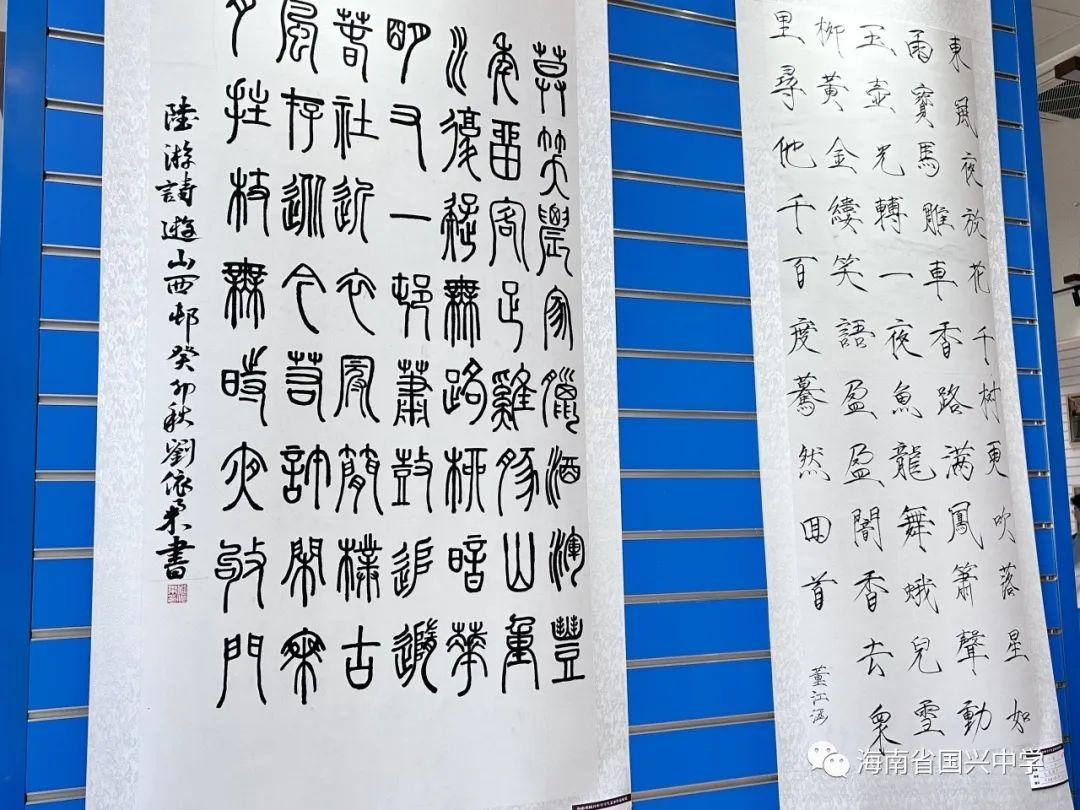 莫笑農家臘酒渾豐
年留客足雞豚山重
水復疑無路柳暗華
明又一邨蕭鼓追隨
春社近衣冠簡樸古
風存從今若許閑乘
月拄杖無時夜敂門
陸游詩遊山西邨癸卯秋劉依柔書
東風夜放花千树更吹落星如
雨寶馬雕車香路满鳳簫聲動
玉壺光轉一夜魚龍舞蛾兒雪
柳黄金縷笑語盈盈闇香去衆
里尋他千百度驀然回首
董江
海南省国兴中学